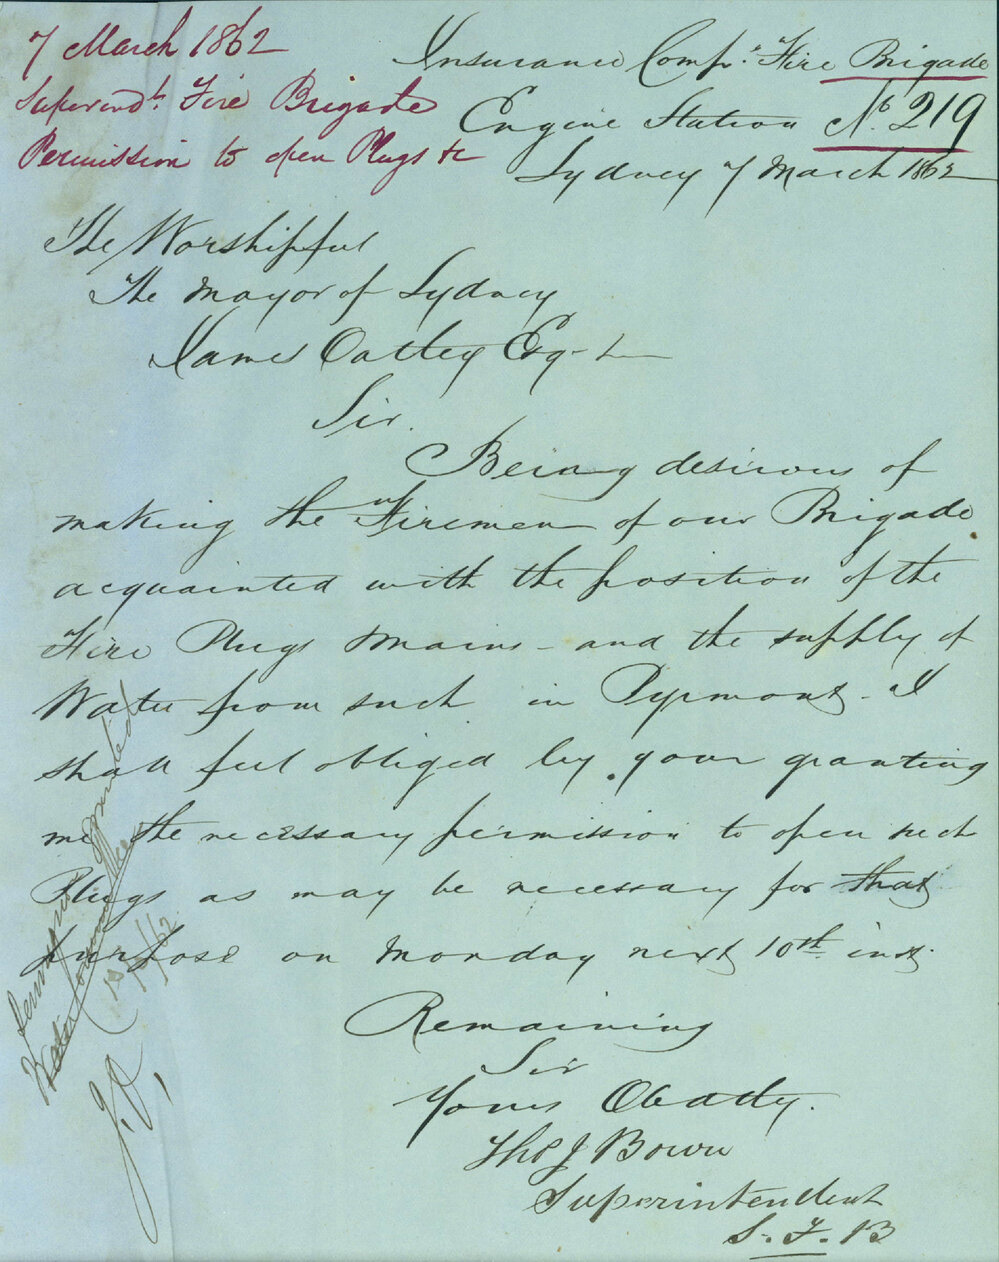 7 March 1862
Superindt. Fire Brigade
Permission to open Plugs &c
Insurance Comps. Fire Brigade
Engine Station No. 219
Sydney 7 March 1862
The Worshipful
The Mayor of Sydney
James Oatley Esq-
Sir.
Being desirous of
making the Firemen of our Brigade
acquainted with the position of the
Fire Plugs Mains - and the supply of
Water from such in Pyrmont. I
shall feel obliged by your granting
me the necessary permission to open such
Plugs as may be necessary for that
purpose on Monday next 10th inst.
Remaining
Sir
Yours Obedtly.
Thos J Bown
Superintendent
S. F. B
Permission granted
Water Committee
10/3/62
J.O,